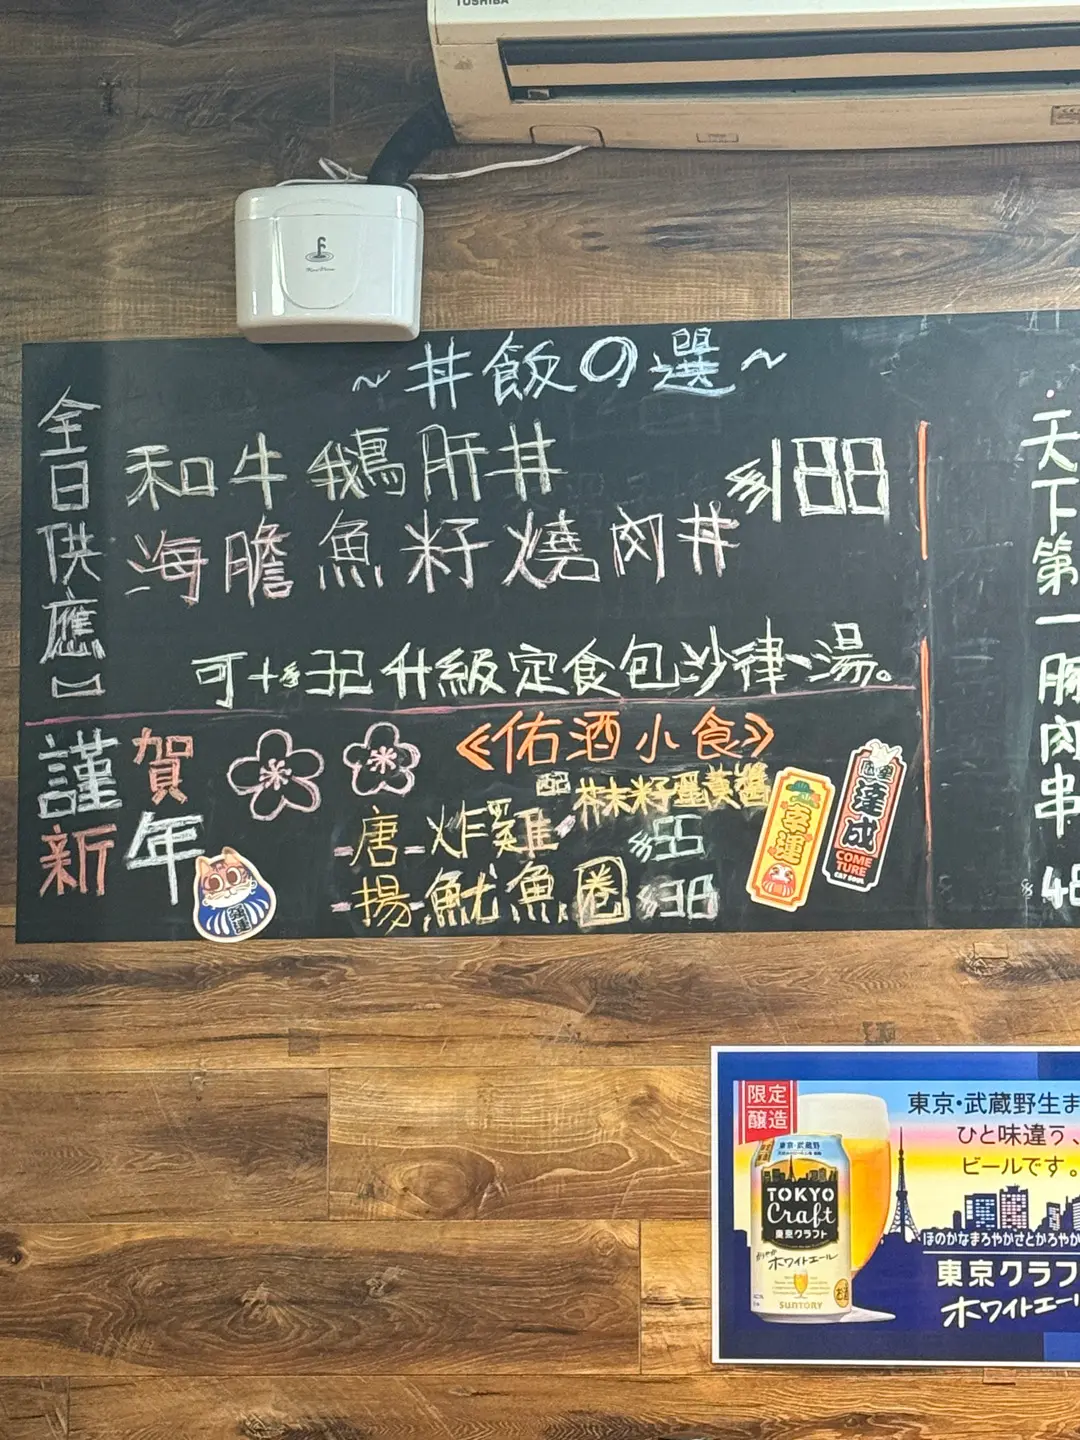 TOSHIBA
~丼飯の選~
全日供應】
和牛鵝肝丼
$188
海膽魚籽燒肉丼
可+$32升級定食包沙律、湯。
謹賀
新年
《佑酒小食》
配芥末籽蛋黃醬
-唐-炸雞 $55
-揚-魷魚圈 $38
幸運
達成
COME
TURE
CAT SOUL
天下第一豚肉串
$48
限定
醸造
東京・武蔵野生ま
ひと味違う、
ビールです。
東京・武蔵野
TOKYO
Craft
東京クラフト
ホワイトエール
SUNTORY
お酒
ほのかなまろやかさとかろやか
東京クラフ
ホワイトエー